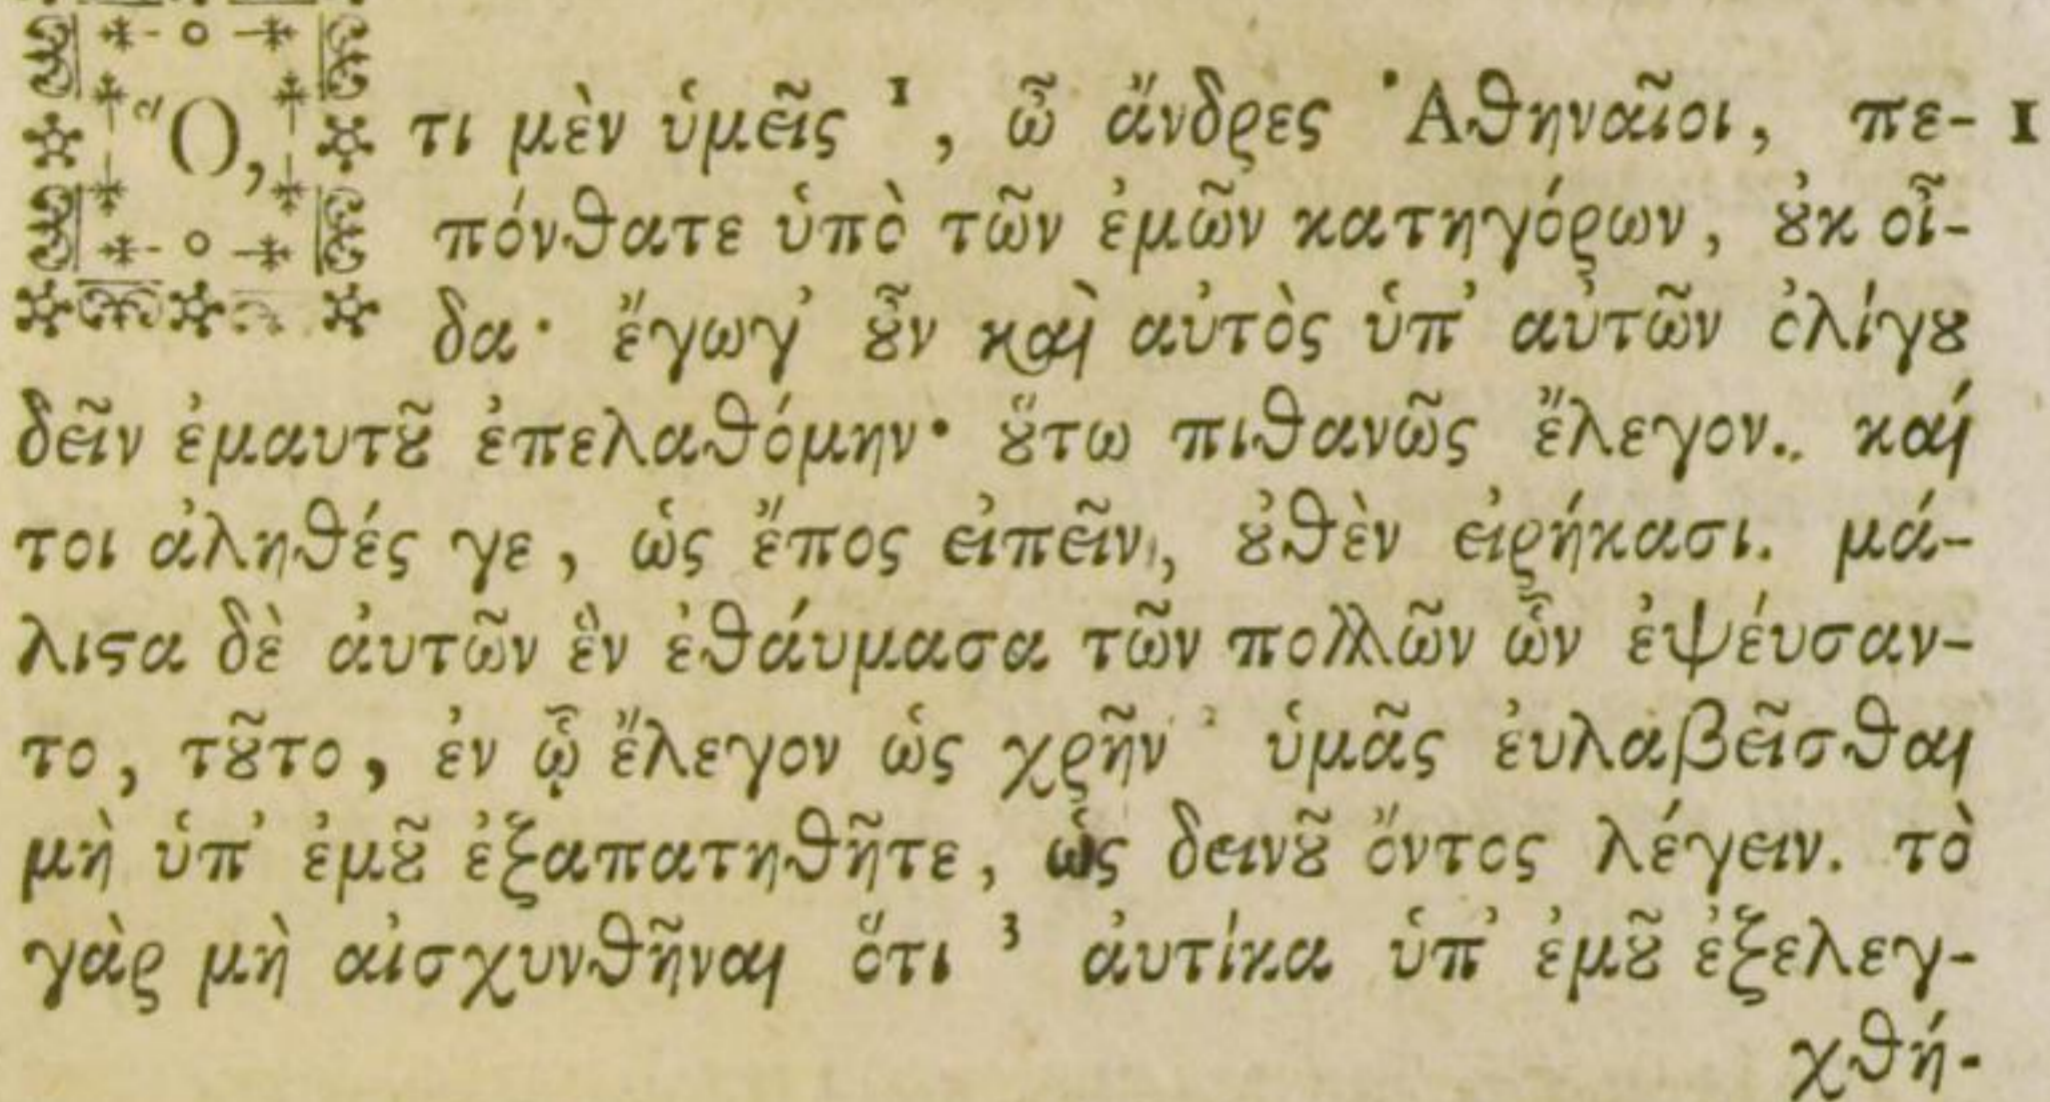 Ὅ, τι μὲν ὑμεῖς ¹, ὦ ἄνδρες Ἀθηναῖοι, πε- 1
πόνθατε ὑπὸ τῶν ἐμῶν κατηγόρων, ȣ̓κ οἶ-
δα· ἔγωγ’ ȣ̓͂ν καὶ αὐτὸς ὑπ’ αὐτῶν ὀλίγȣ
δεῖν ἐμαυτȣ͂ ἐπελαθόμην· ȣ̔́τω πιθανῶς ἔλεγον. καί
τοι ἀληθές γε, ὡς ἔπος εἰπεῖν, ȣ̓θὲν εἰρήκασι. μά-
λιϛα δὲ ἀυτῶν ἓν ἐθάυμασα τῶν πολλῶν ὧν ἐψέυσαν-
το, τȣ͂το, ἐν ᾧ ἔλεγον ὡς χρῆν ² ὑμᾶς ἐυλαβεῖσθαι
μὴ ὑπ’ ἐμȣ͂ ἐξαπατηθῆτε, ὡς δεινȣ͂ ὄντος λέγειν. τὸ
γὰρ μὴ αἰσχυνθῆναι ὅτι ³ ἀυτίκα ὑπ’ ἐμȣ͂ ἐξελεγ-
χθή-